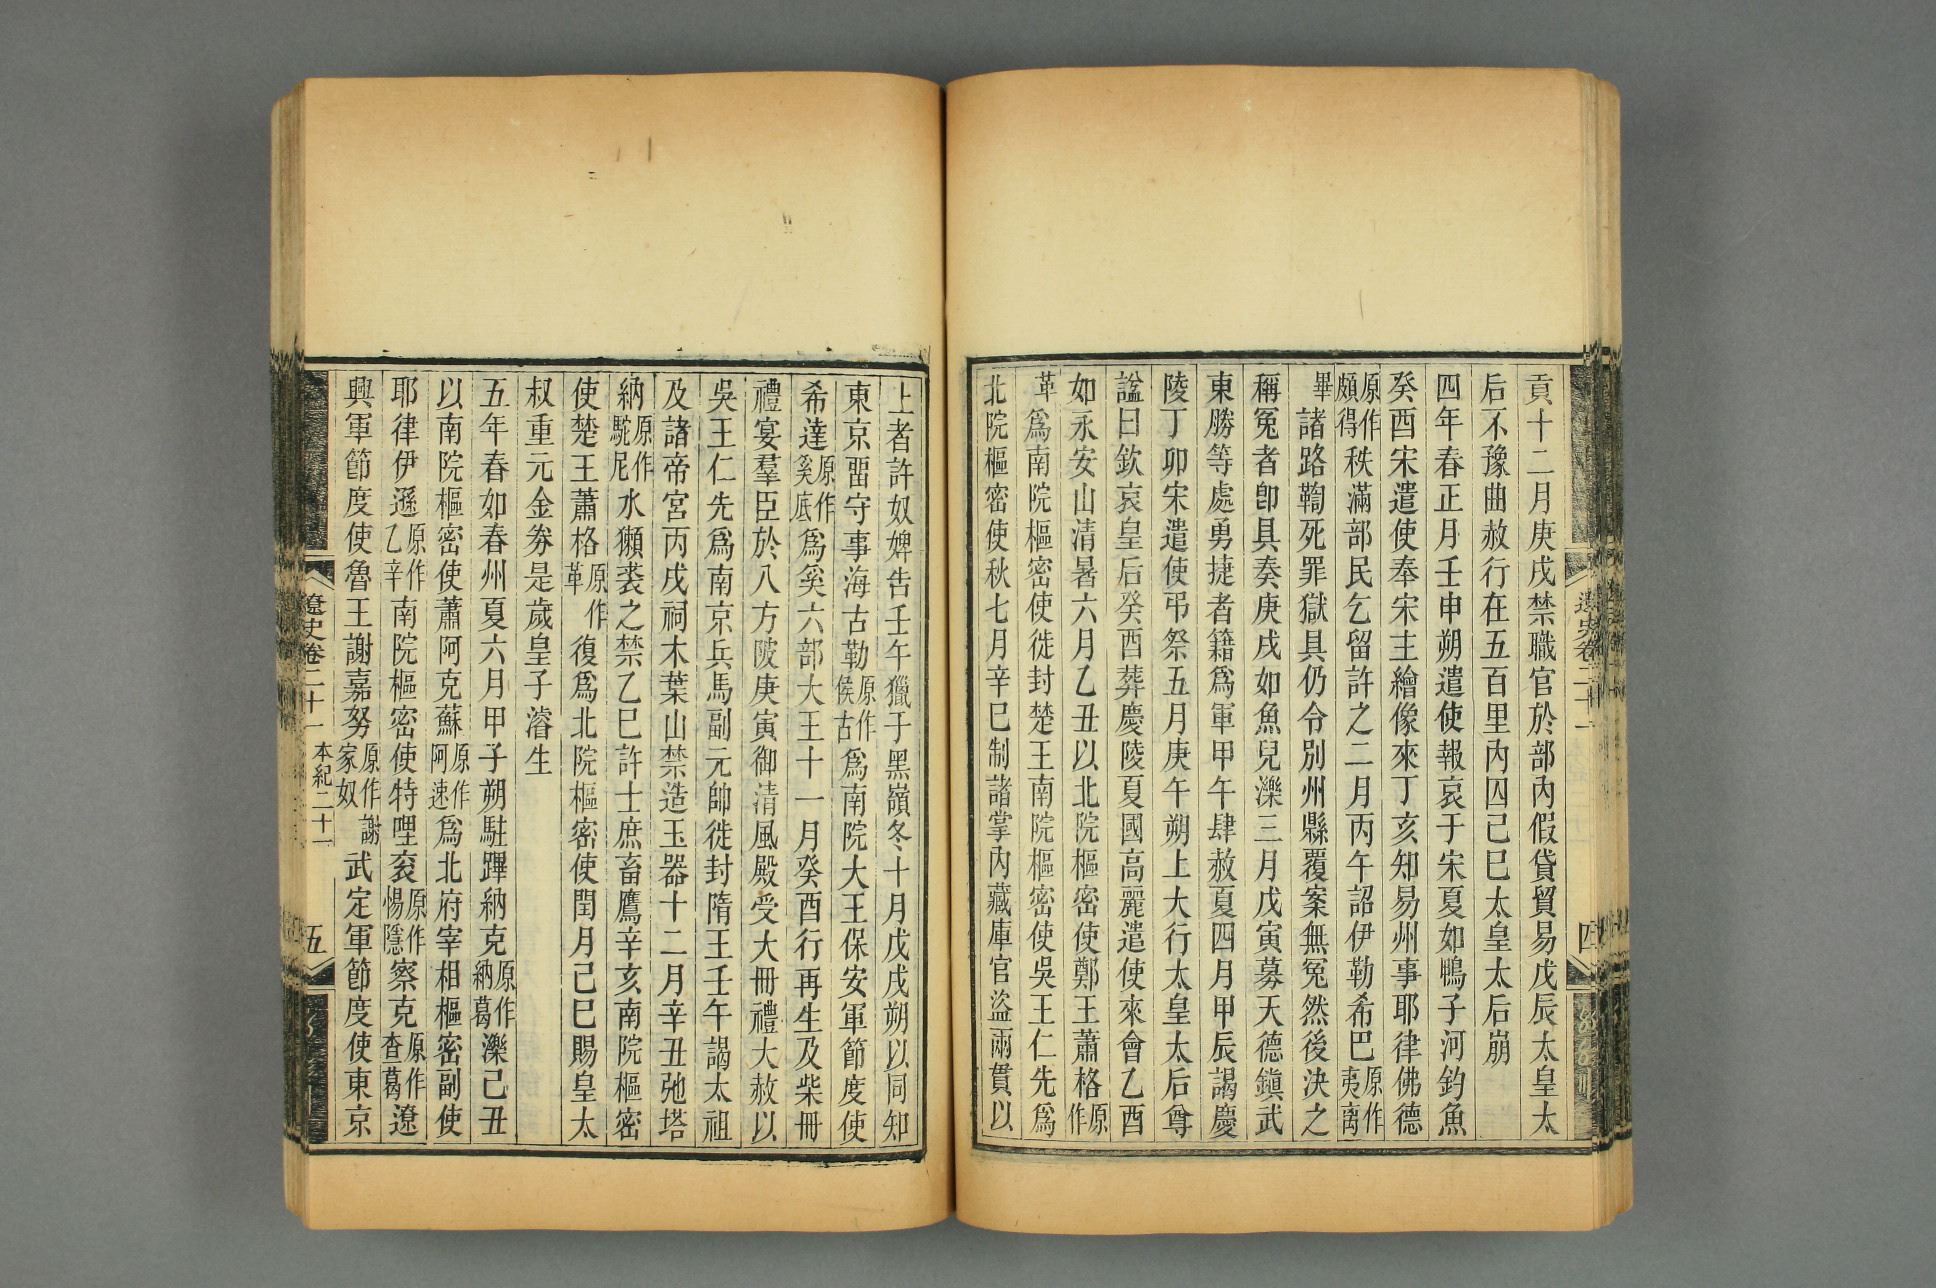 貢十二月庚戌禁職官於部內假貸貿易戊辰太皇太
后不豫曲赦行在五百里內囚己巳太皇太后崩
四年春正月壬申朔遣使報哀于宋夏如鴨子河釣魚
癸酉宋遣使奉宋主繪像來丁亥知易州事耶律佛德
原作頗得秩滿部民乞留許之二月丙午詔伊勒希巴原作夷离
畢諸路鞫死罪獄具仍令別州縣覆案無冤然後決之
稱冤者卽具奏庚戌如魚兒濼三月戊寅募天德鎭武
東勝等處勇捷者籍爲軍甲午肆赦夏四月甲辰謁慶
陵丁卯宋遣使弔祭五月庚午朔上大行太皇太后尊
諡曰欽哀皇后癸酉葬慶陵夏國高麗遣使來會乙酉
如永安山清暑六月乙丑以北院樞密使鄭王蕭格原作
革爲南院樞密使徙封楚王南院樞密使吳王仁先爲
北院樞密使秋七月辛巳制諸掌內藏庫官盜兩貫以
上者許奴婢告壬午獵于黑嶺冬十月戊戌朔以同知
東京畱守事海古勒原作侯古爲南院大王保安軍節度使
希達原作奚底爲奚六部大王十一月癸酉行再生及柴冊
禮宴羣臣於八方陂庚寅御清風殿受大冊禮大赦以
吳王仁先爲南京兵馬副元帥徙封隋王壬午謁太祖
及諸帝宮丙戌祠木葉山禁造玉器十二月辛丑弛塔
納原作駝尼水獺裘之禁乙巳許士庶畜鷹辛亥南院樞密
使楚王蕭格原作革復爲北院樞密使閏月己巳賜皇太
叔重元金券是歲皇子濬生
五年春如春州夏六月甲子朔駐蹕納克原作納葛濼己丑
以南院樞密使蕭阿克蘇原作阿速爲北府宰相樞密副使
耶律伊遜原作乙辛南院樞密使特哩袞原作惕隱察克原作查葛遼
興軍節度使魯王謝嘉努原作謝家奴武定軍節度使東京
遼史卷二十一
本紀二十一
五
遼史卷二十一
四